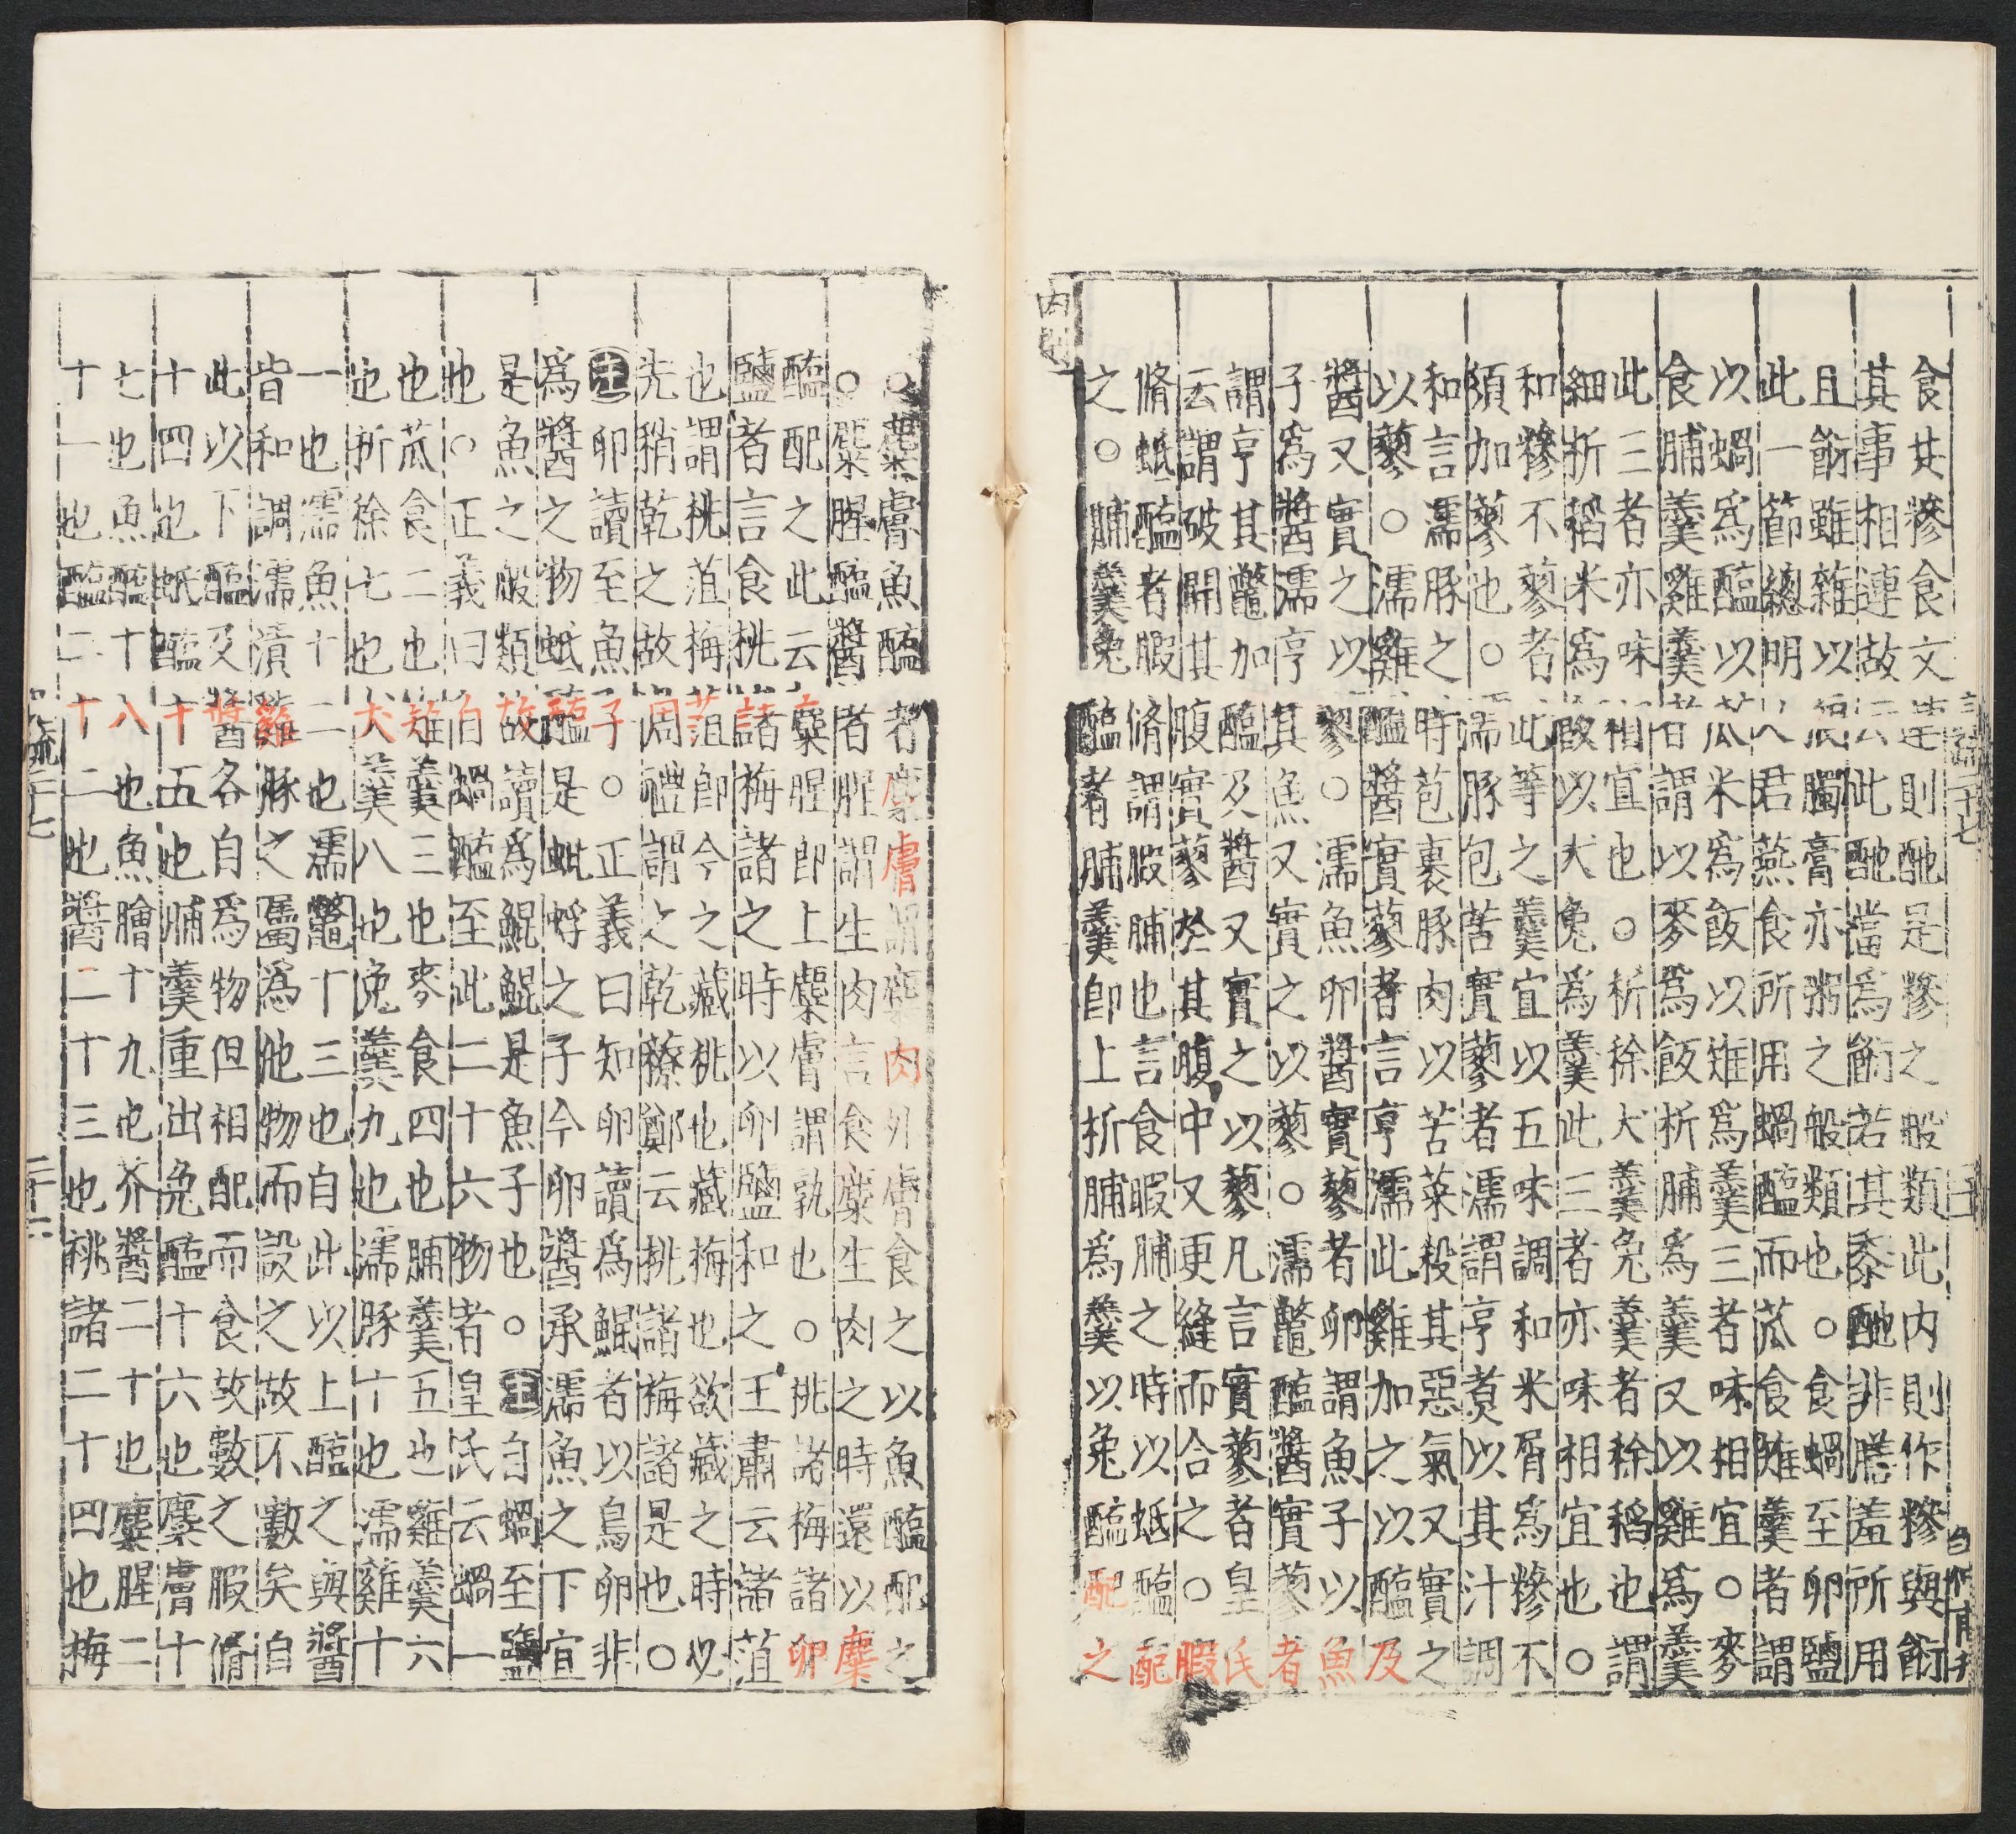 食其糝食文連則酏是糝之般類此内則作糝與䬳
其事相連故云此酏當爲䬳若其黍酏非膳羞所用
且䬳雖雜以狼臅膏亦粥之般類也○食蝸至卵鹽
此一節緫明人君燕食所用蝸醢而苽食雉羹者謂
以蝸爲醢以苽米爲飯以雉爲羹三者味相宜○麥
食脯羹雞羹者謂以麥爲飯析脯爲羹又以雞爲羹
此三者亦味相宜也○析稌犬羹兔羹者稌稻也謂
細析稻米爲飯以犬兔爲羹此三者亦味相宜也○
和糝不蓼者此等之羹宜以五味調和米屑爲糝不
須加蓼也○濡豚包苦實蓼者濡謂亨煑以其汁調
和言濡豚之時苞裹豚肉以苦菜殺其惡氣又實之
以蓼○濡雞醢醬實蓼者言亨濡此雞加之以醢及
醬又實之以蓼○濡魚卵醬實蓼者卵謂魚子以魚
子爲醬濡亨其魚又實之以蓼○濡鼈醢醬實蓼者
謂亨其鼈加醢及醬又實之以蓼凡言實蓼者皇氏
云謂破開其腹實蓼於其腹中又更縫而合之○腶
脩蚳醢者腶脩謂腶脯也言食腶脯之時以蚳醢配
之○脯羹兔醢者脯羹即上析脯爲羹以兔醢配之
内則
○麋膚魚醢者麋膚謂麋肉外膚食之以魚醢配之
○麋腥醢醬者腥謂生肉言食麋生肉之時還以麋
醢配之此云麋腥即上麋膚謂孰也○桃諸梅諸卵
鹽者言食桃諸梅諸之時以卵鹽和之王肅云諸菹
也謂桃菹梅菹即今之藏桃也藏梅也欲藏之時必
先稍乾之故周禮謂之乾䕩鄭云桃諸梅諸是也○
注卵讀至魚子○正義曰知卵讀爲鯤者以鳥卵非
爲醬之物蚳醢是蚍蜉之子今卵醬承濡魚之下宜
是魚之般類故讀爲鯤鯤是魚子也○注自蝸至鹽
也○正義曰自蝸醢至此二十六物者皇氏云蝸一
也苽食二也雉羹三也麥食四也脯羹五也雞羹六
也析稌七也犬羹八也兔羹九也濡豚十也濡雞十
一也濡魚十二也濡鼈十三也自此以上醢之與醬
皆和調濡漬雞豚之屬爲他物而設之故不數矣自
此以下醢及醬各自爲物但相配而食故數之腶脩
十四也蚳醢十五也脯羹重出兔醢十六也麋膚十
七也魚醢十八也魚膾十九也芥醬二十也麋腥二
十一也醢二十二也醬二十三也桃諸二十四也梅